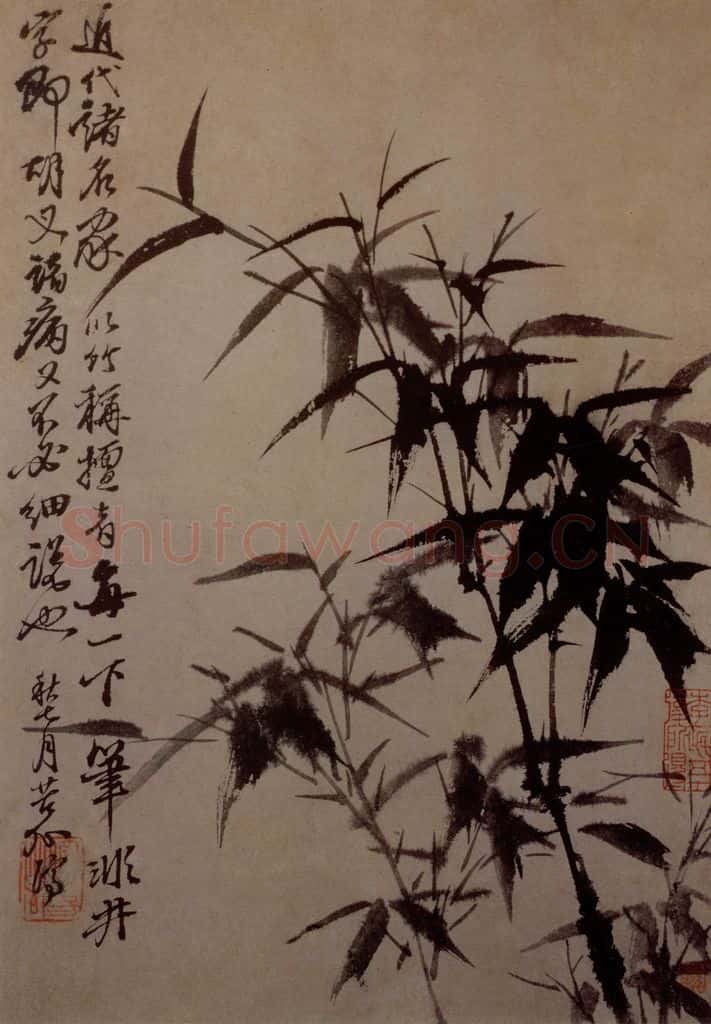 近代諸名家以竹稱擅者每一下筆非井
字即胡叉諸病又不必細說也 秋七月苦瓜濟
Shufawang.CN